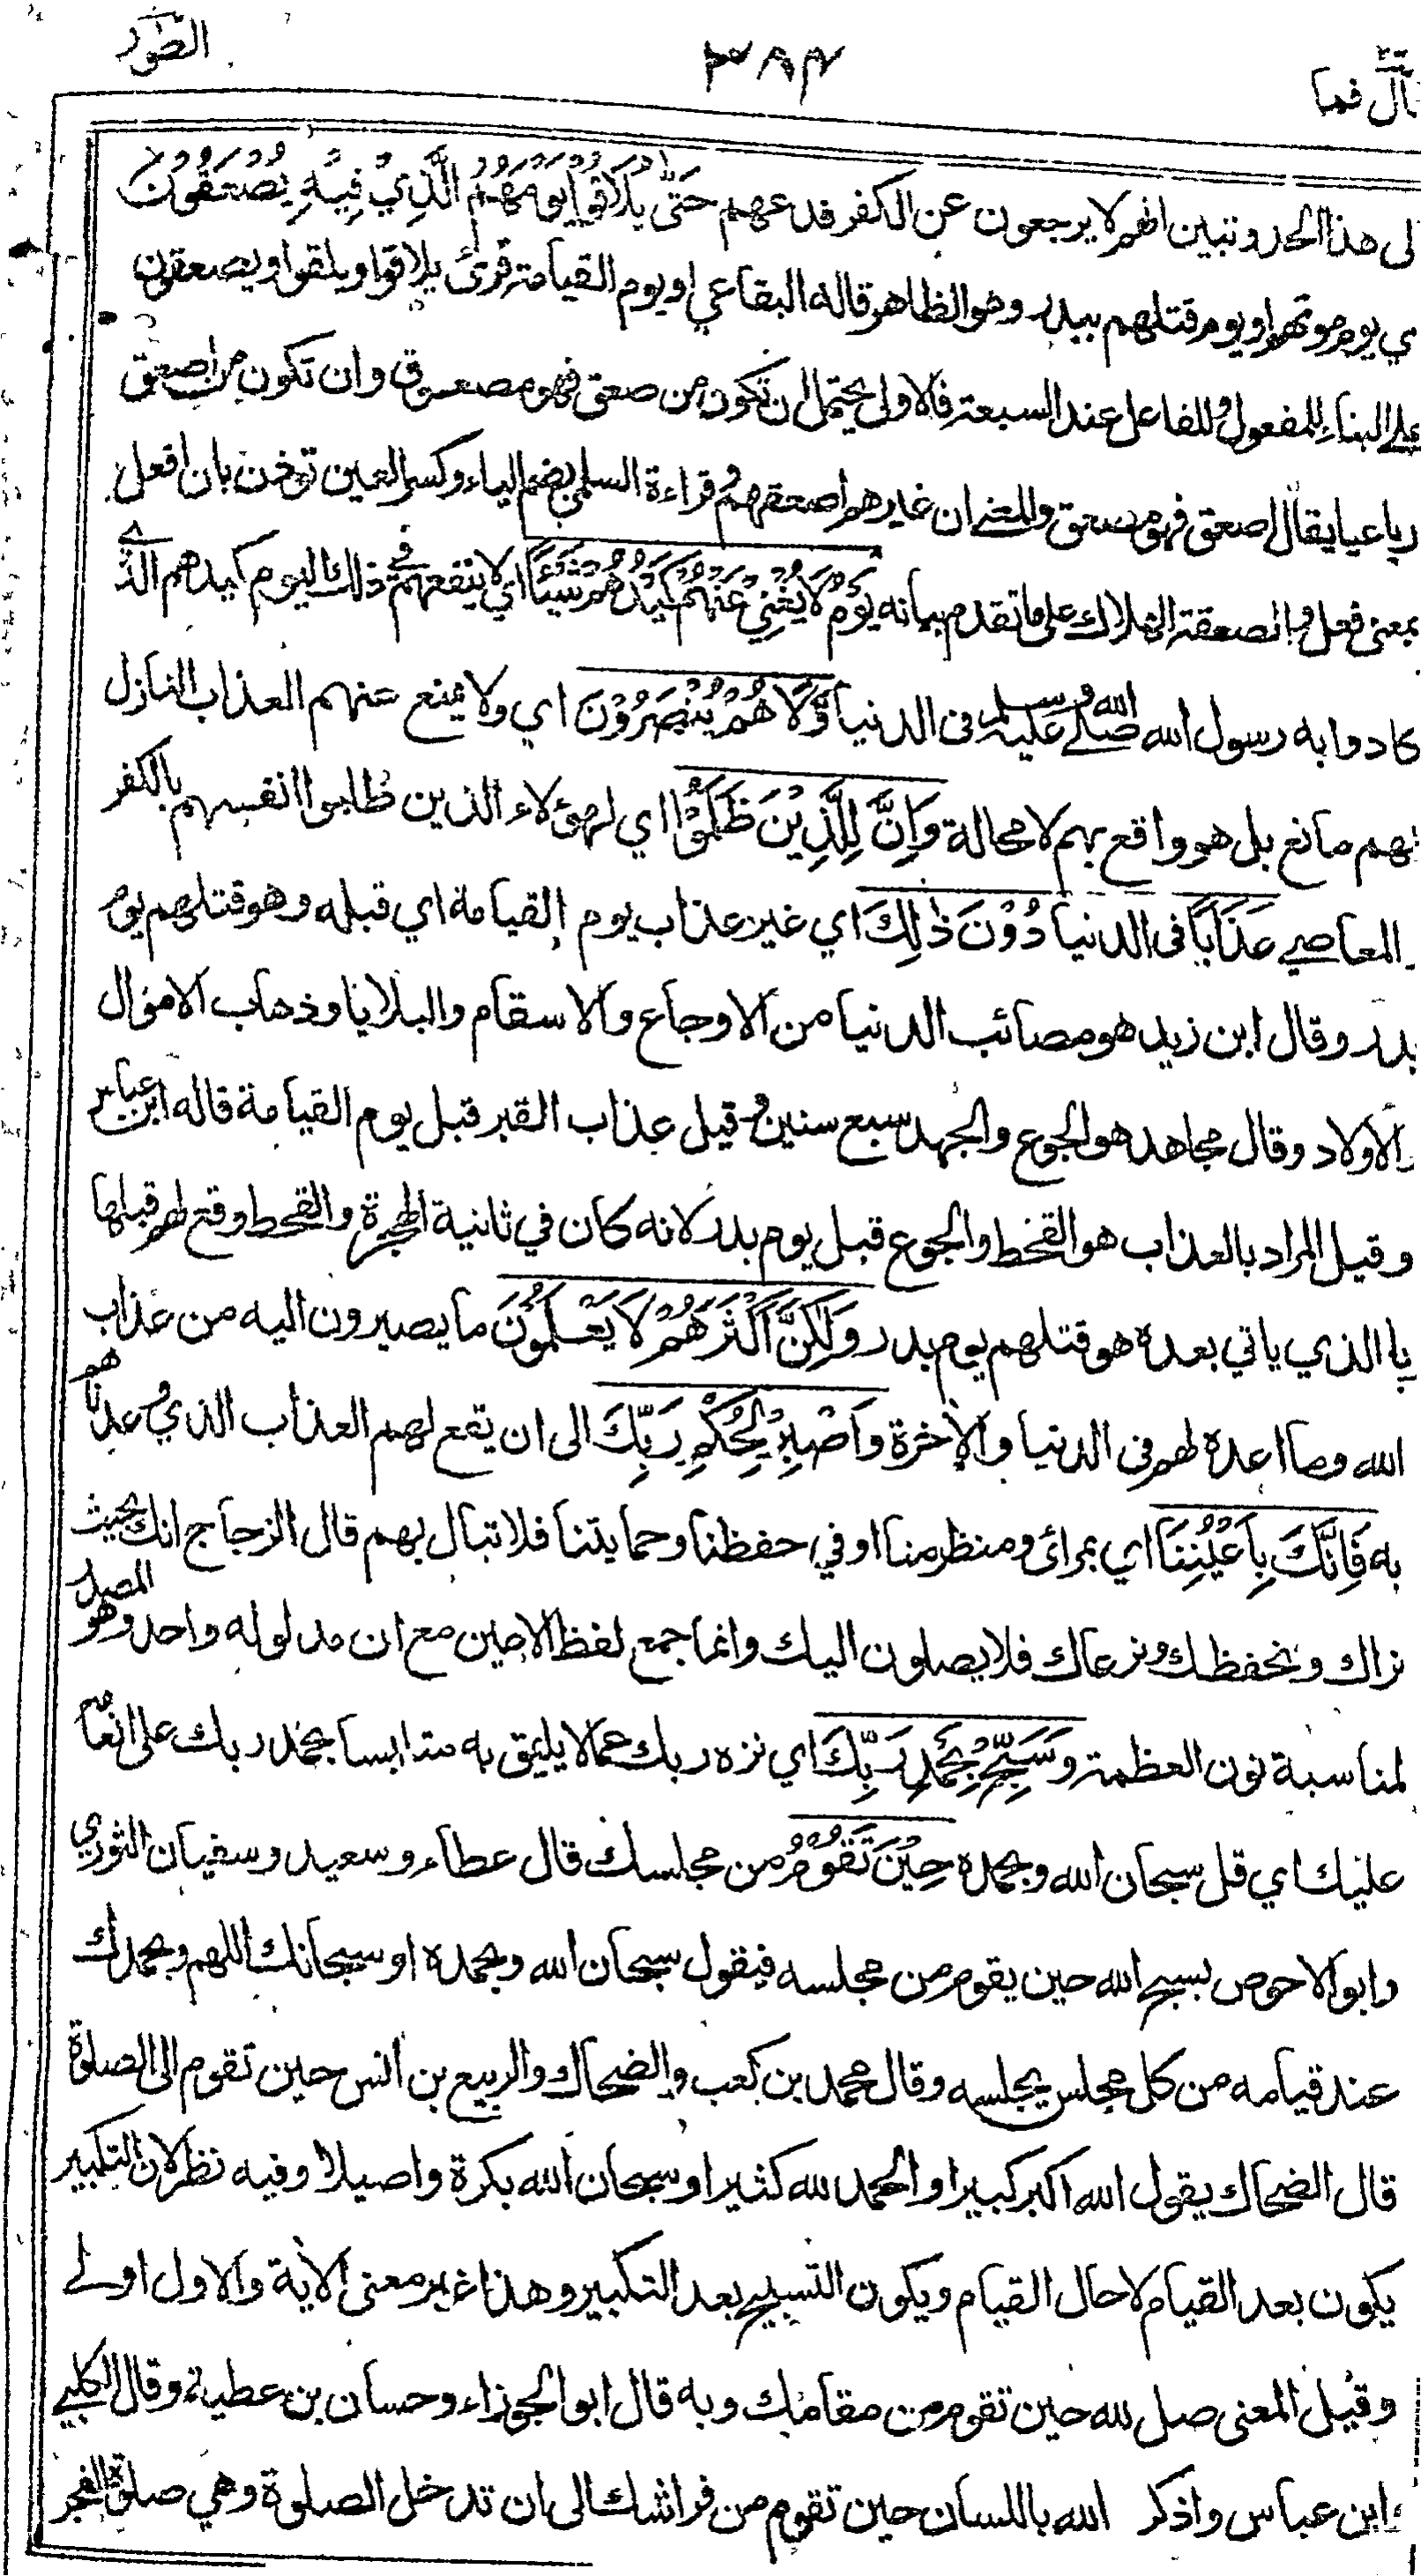 قال فما
٣٨٤
الطور
لى هذا الحد وتبين انهم لا يرجعون عن الكفر فدعهم حَتّٰى يُلَاقُوْا يَوْمَهُمُ الَّذِيْ فِيْهِ يُصْعَقُوْنَ
ي يوم موتهم او يوم قتلهم ببدر وهو الظاهر قاله البقاعي او يوم القيامة قرئ يلاقوا ويلقوا ويصعقون
على البناء للمفعول وللفاعل عند السبعة فالاولى يحتمل ان تكون من صعق فهو مصعوق وان تكون من اصعق
رباعيا يقال اصعق فهو مصعق والمعنى ان غيرهم اصعقهم وقراءة السلمي بضم الياء وكسر العين تؤذن بان افعل
بمعنى فعل والصعقة الهلاك على ما تقدم بيانه يَوْمَ لَا يُغْنِيْ عَنْهُمْ كَيْدُهُمْ شَيْئًا اي لا ينفعهم في ذلك اليوم كيدهم الذي
كادوا به رسول الله صلى الله عليه وسلم فى الدنيا وَّلَا هُمْ يُنْصَرُوْنَ اي ولا يمنع عنهم العذاب النازل
بهم مانع بل هو واقع بهم لا محالة وَاِنَّ لِلَّذِيْنَ ظَلَمُوْا اي لهؤلاء الذين ظلموا انفسهم بالكفر
المعاصي عَذَابًا فى الدنيا دُوْنَ ذٰلِكَ اي غير عذاب يوم القيامة اي قبله وهو قتلهم يوم
بدر وقال ابن زيد هو مصائب الدنيا من الاوجاع والاسقام والبلايا وذهاب الاموال
والاولاد وقال مجاهد هو الجوع والجهد سبع سنين وقيل عذاب القبر قبل يوم القيامة قاله ابن عباس
وقيل المراد بالعذاب هو القحط والجوع قبل يوم بدر لانه كان في ثانية الهجرة والقحط وقع لهم قبلها
با الذي ياتي بعده هو قتلهم يوم بدر وَلٰكِنَّ اَكْثَرَهُمْ لَا يَعْلَمُوْنَ ما يصيرون اليه من عذاب
الله وما اعده لهم فى الدنيا والاخرة وَاصْبِرْ لِحُكْمِ رَبِّكَ الى ان يقع لهم العذاب الذي وعدناهم
به فَاِنَّكَ بِاَعْيُنِنَا اي بمرائ ومنظر منا او في حفظنا وحمايتنا فلا تبال بهم قال الزجاج انك بحيث
نراك ونحفظك ونرعاك فلا يصلون اليك وانما جمع لفظ الاعين مع ان مدلوله واحد وهو المصدر
لمناسبة نون العظمة وَسَبِّحْ بِحَمْدِ رَبِّكَ اي نزه ربك عما لا يليق به متلابسا بحمد ربك على انعامه
عليك اي قل سبحان الله وبحمده حِيْنَ تَقُوْمُ من مجلسك قال عطاء وسعيد وسفيان الثوري
وابو الاحوص يسبح الله حين يقوم من مجلسه فيقول سبحان الله وبحمده او سبحانك اللهم وبحمدك
عند قيامه من كل مجلس يجلسه وقال محمد بن كعب والضحاك والربيع بن انس حين تقوم الى الصلوة
قال الضحاك يقول الله اكبر كبيرا والحمد لله كثيرا وسبحان الله بكرة واصيلا وفيه نظر لان التكبير
يكون بعد القيام لا حال القيام ويكون التسبيح بعد التكبير وهذا غير معنى الاية والاول اولى
وقيل المعنى صل لله حين تقوم من مقامك وبه قال ابو الجوزاء وحسان بن عطية وقال الكلبي
ابن عباس واذكر الله باللسان حين تقوم من فراشك الى ان تدخل الصلوة وهي صلوة الفجر